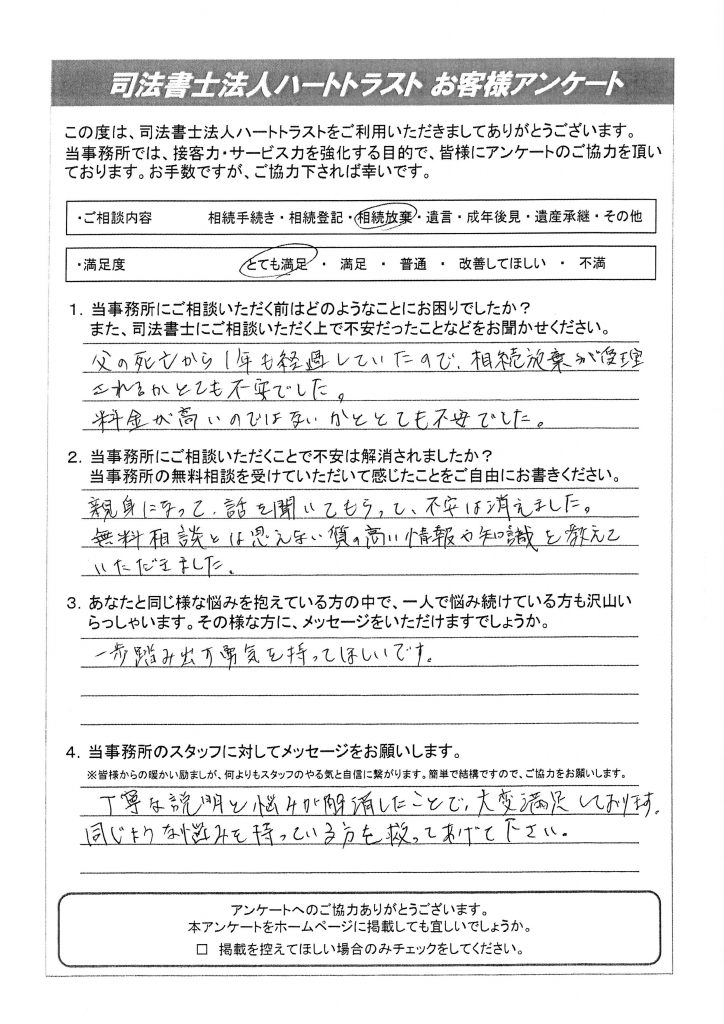 司法書士法人ハートトラスト お客様アンケート
この度は、司法書士法人ハートトラストをご利用いただきましてありがとうございます。
当事務所では、接客力・サービス力を強化する目的で、皆様にアンケートのご協力を頂い
ております。お手数ですが、ご協力下されば幸いです。
・ご相談内容 相続手続き・相続登記・相続放棄・遺言・成年後見・遺産承継・その他
・満足度 とても満足 ・ 満足 ・ 普通 ・ 改善してほしい ・ 不満
1. 当事務所にご相談いただく前はどのようなことにお困りでしたか?
また、司法書士にご相談いただく上で不安だったことなどをお聞かせください。
父の死亡から1年も経過していたので、相続放棄が受理
されるかとても不安でした。
料金が高いのではないかととても不安でした。
2. 当事務所にご相談いただくことで不安は解消されましたか?
当事務所の無料相談を受けていただいて感じたことをご自由にお書きください。
親身になって、話を聞いてもらって、不安は消えました。
無料相談とは思えない質の高い情報や知識を教えて
いただきました。
3. あなたと同じ様な悩みを抱えている方の中で、一人で悩み続けている方も沢山い
らっしゃいます。その様な方に、メッセージをいただけますでしょうか。
一歩踏み出す勇気を持ってほしいです。
4. 当事務所のスタッフに対してメッセージをお願いします。
※皆様からの暖かい励ましが、何よりもスタッフのやる気と自信に繋がります。簡単で結構ですので、ご協力をお願いします。
丁寧な説明と悩みが解消したことで、大変満足しております。
同じような悩みを持っている方を救ってあげて下さい。
アンケートへのご協力ありがとうございます。
本アンケートをホームページに掲載しても宜しいでしょうか。
□ 掲載を控えてほしい場合のみチェックをしてください。